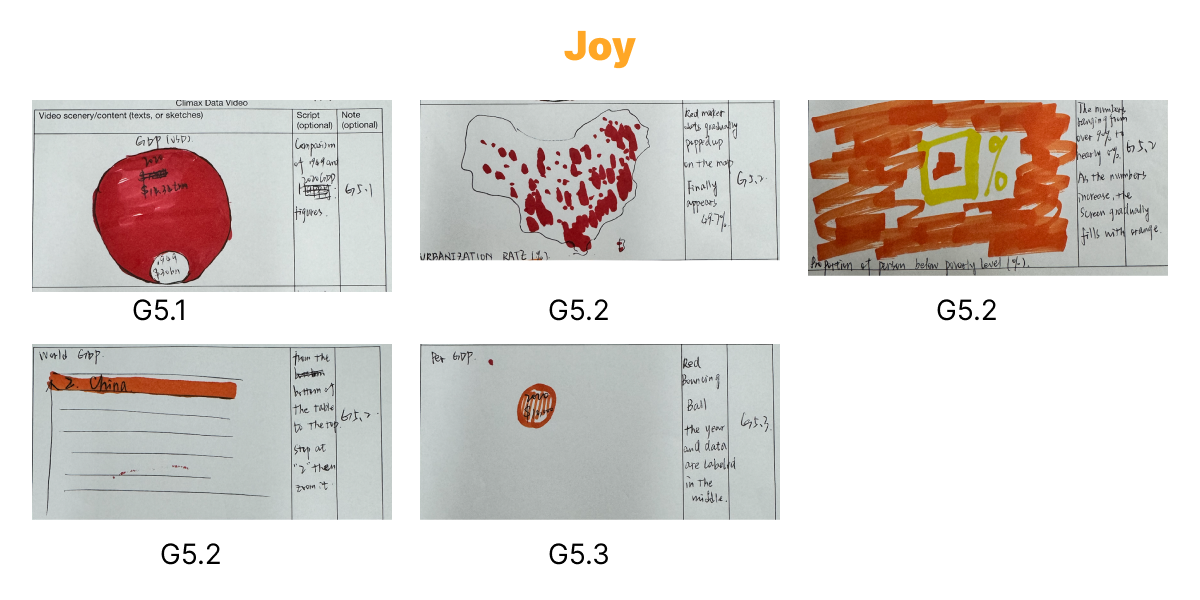 Joy
Climax Data Video
Video scenery/content (texts, or sketches)
Script
(optional)
Note
(optional)
GDP (USD)
2020
Comparison
of 1949 and
2020 GDP
figures.
G5.1
1949
$30bn
G5.1
Red marker
dots gradually
popped up
on the map
Finally
appears
49.7%.
G5.2
URBANIZATION RATE (%).
G5.2
%
The numbers
ranging from
over 90% to
nearly 0%.
As the numbers
increase, the
screen gradually
fills with orange.
G5.2
Proportion of person below poverty level (%).
G5.2
World GDP.
2. China
from the
bottom of
the table
to the top.
stop at
"2" then
zoom it.
G5.2
G5.2
Per GDP.
2020
Red
Bouncing
Ball
the year
and data
are labeled
in the
middle.
G5.3
G5.3